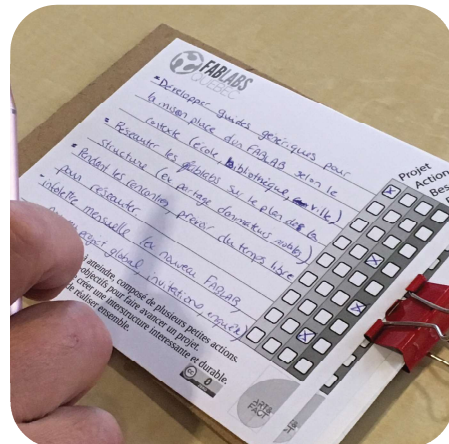 FABLABS
QUÉBEC
- Developper guides génériques pour
la mise en place d'un FABLAB selon le
contexte (école, bibliothèque, ville)
- Réseauter les fablabs sur le plan de la
structure (ex partage
- Pendant les rencontres prévoir du temps libre
pour réseauter
- infolettre mensuelle (ex nouveau FABLAB,
global, invitations,
Projet
Action
Bes
à atteindre, composé de plusieurs petites actions.
objectifs pour faire avancer un projet.
créer une interstructure interessante et durable.
de réaliser ensemble.
cc 0
ARTE
FACT